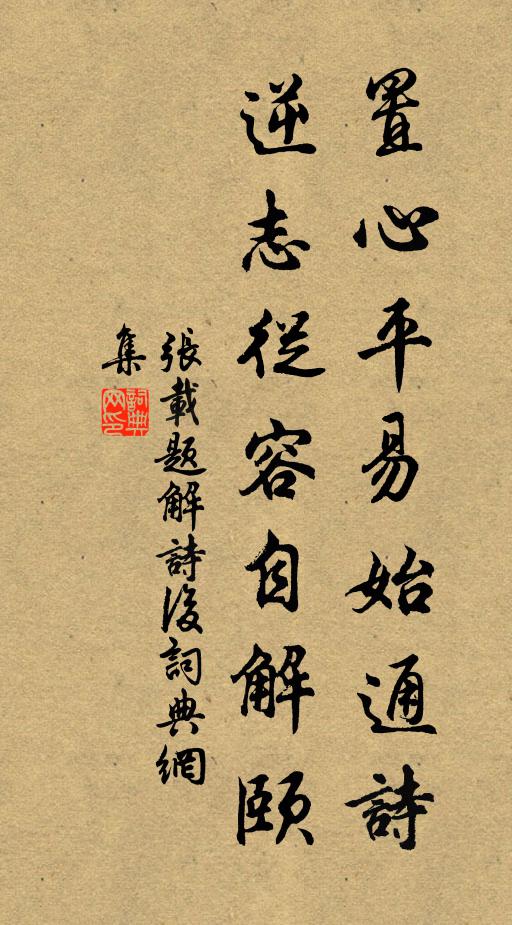 置心平易始通詩
逆志從容自解頤
張載题解詩後詞典網
集
詞典
网印